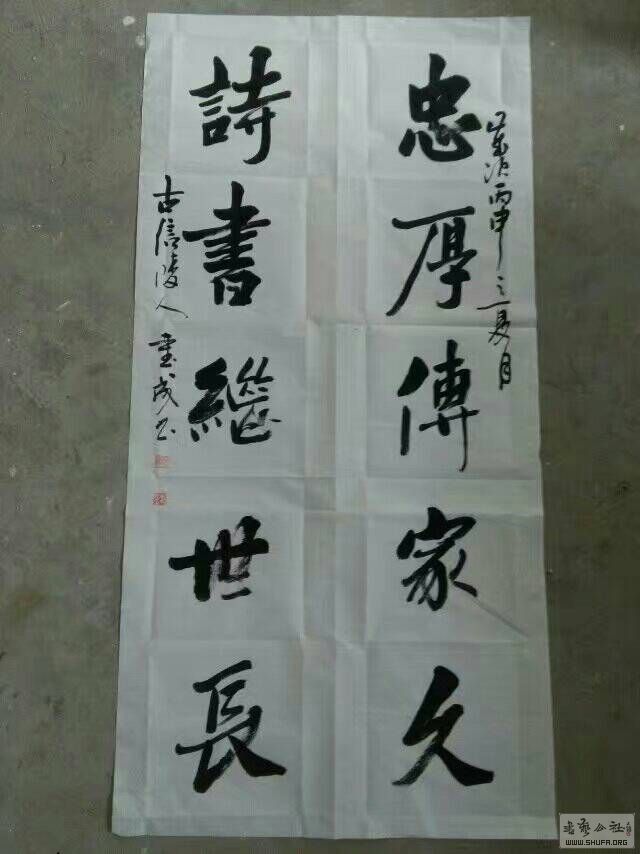 歲次丙申之夏月
忠厚傳家久
詩書繼世長
古信陵人重成书
書藝公社
WWW.SHUFA.ORG